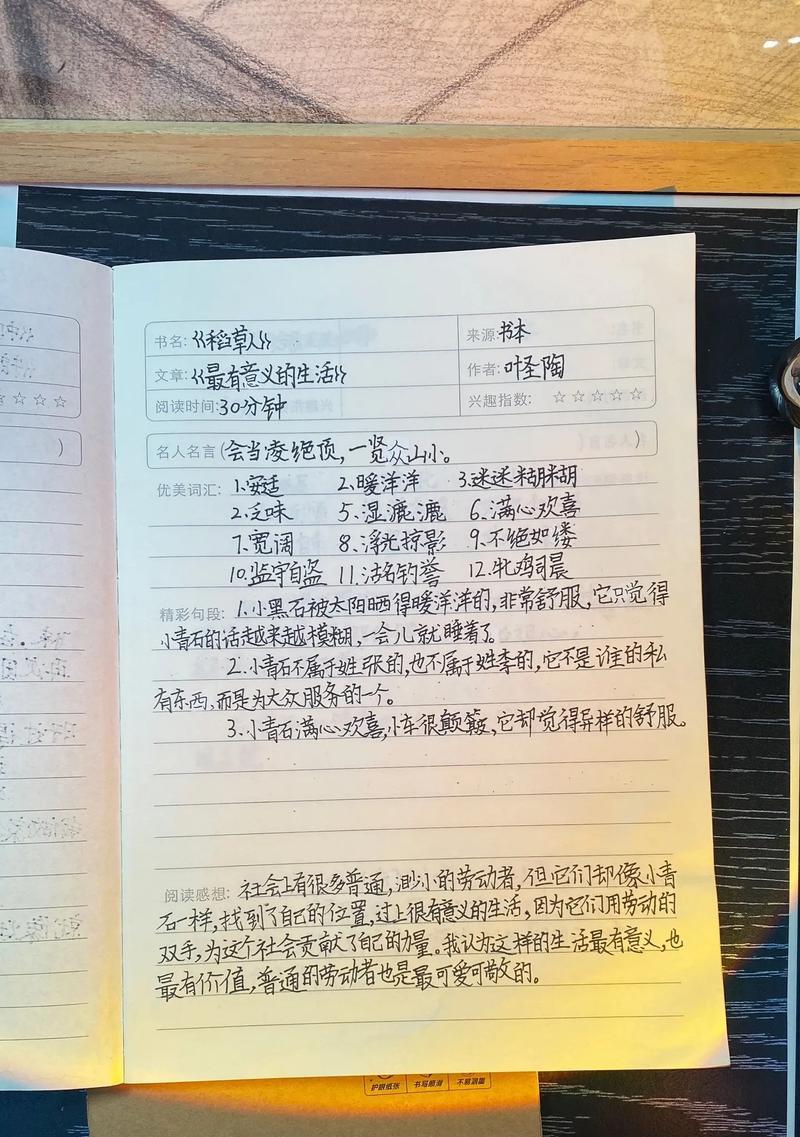 书名:《稻草人》 来源:书本
文章:《最有意义的生活》 作者:叶圣陶
阅读时间:30分钟 兴趣指数: ☆☆☆☆☆
名人名言(会当凌绝顶,一览众山小。)
优美词汇: 1、安适 2、暖洋洋 3、迷迷糊糊
2、乏味 5、湿漉漉 6、满心欢喜
7、宽阔 8、浮光掠影 9、不绝如缕
10、监守自盗 11、沽名钓誉 12、牝鸡司晨
精彩句段: 1、小黑石被太阳晒得暖洋洋的,非常舒服,它只觉得
小青石的话越来越模糊,一会儿就睡着了。
2、小青石不属于姓张的,也不属于姓李的,它不是谁的私
有东西,而是为大众服务的一个。
3、小青石满心欢喜,小车很颠簸,它却觉得异样的舒服。
阅读感想: 社会上有很多普通,渺小的劳动者,但它们却像小青
石一样,找到了自己的位置,过上很有意义的生活,因为它们用劳动的
双手,为这个社会贡献了自己的力量。我认为这样的生活最有意义,也
最有价值,普通的劳动者也是最可爱可敬的。
护眼纸张 书写顺滑 不易洇墨